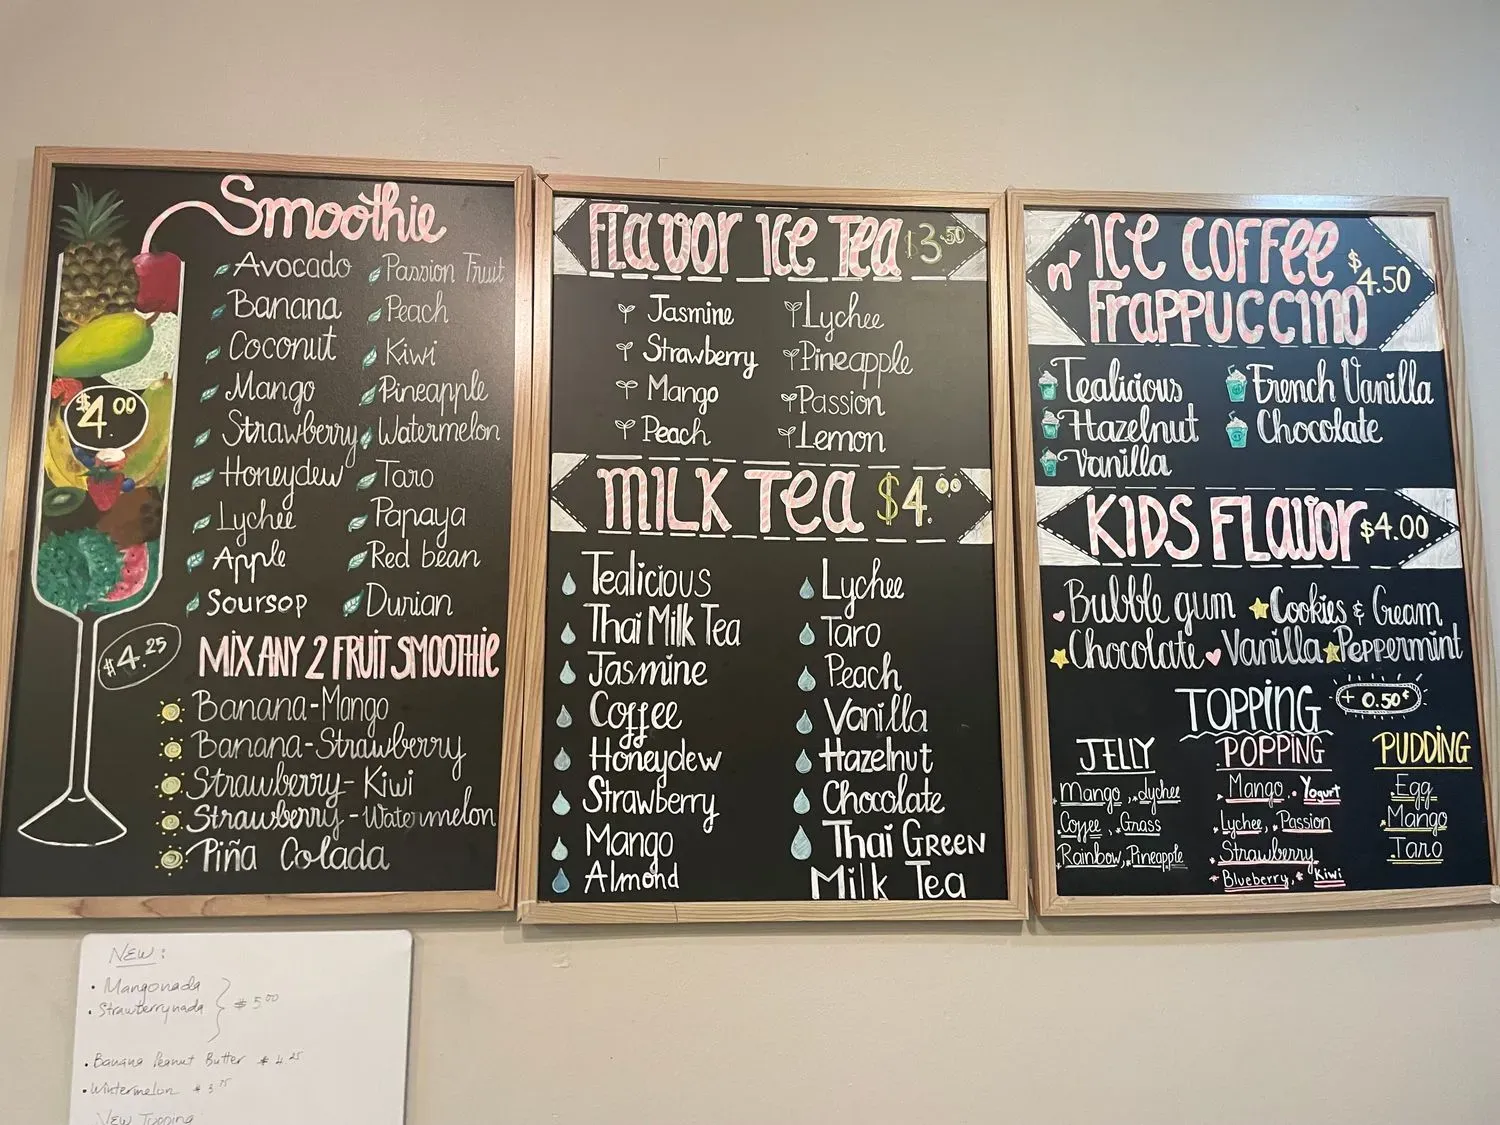 Smoothie
Avocado Passion Fruit
Banana Peach
Coconut Kiwi
Mango Pineapple
Strawberry Watermelon
Honeydew Taro
Lychee Papaya
Apple Red bean
Soursop Durian
$4.00
$4.25
MIX ANY 2 FRUIT SMOOTHIE
Banana-Mango
Banana-Strawberry
Strawberry-Kiwi
Strawberry-Watermelon
Piña Colada
Flavor Ice Tea $3.50
Jasmine Lychee
Strawberry Pineapple
Mango Passion
Peach Lemon
MILK TEA $4.00
Tealicious Lychee
Thai Milk Tea Taro
Jasmine Peach
Coffee Vanilla
Honeydew Hazelnut
Strawberry Chocolate
Mango Thai GREEN
Almond Milk Tea
ICE COFFEE
n' FRAPPUCCINO $4.50
Tealicious French Vanilla
Hazelnut Chocolate
Vanilla
KIDS FLAVOR $4.00
Bubble gum Cookies & Cream
Chocolate Vanilla Peppermint
TOPPING + 0.50¢
JELLY POPPING PUDDING
Mango, Lychee Mango, Yogurt Egg
Coffee, Grass Lychee, Passion Mango
Rainbow, Pineapple Strawberry Taro
Blueberry, Kiwi
NEW:
• Mangonada
• Strawberrynada } $5.00
• Banana Peanut Butter $4.25
• Wintermelon $3.75
NEW Topping